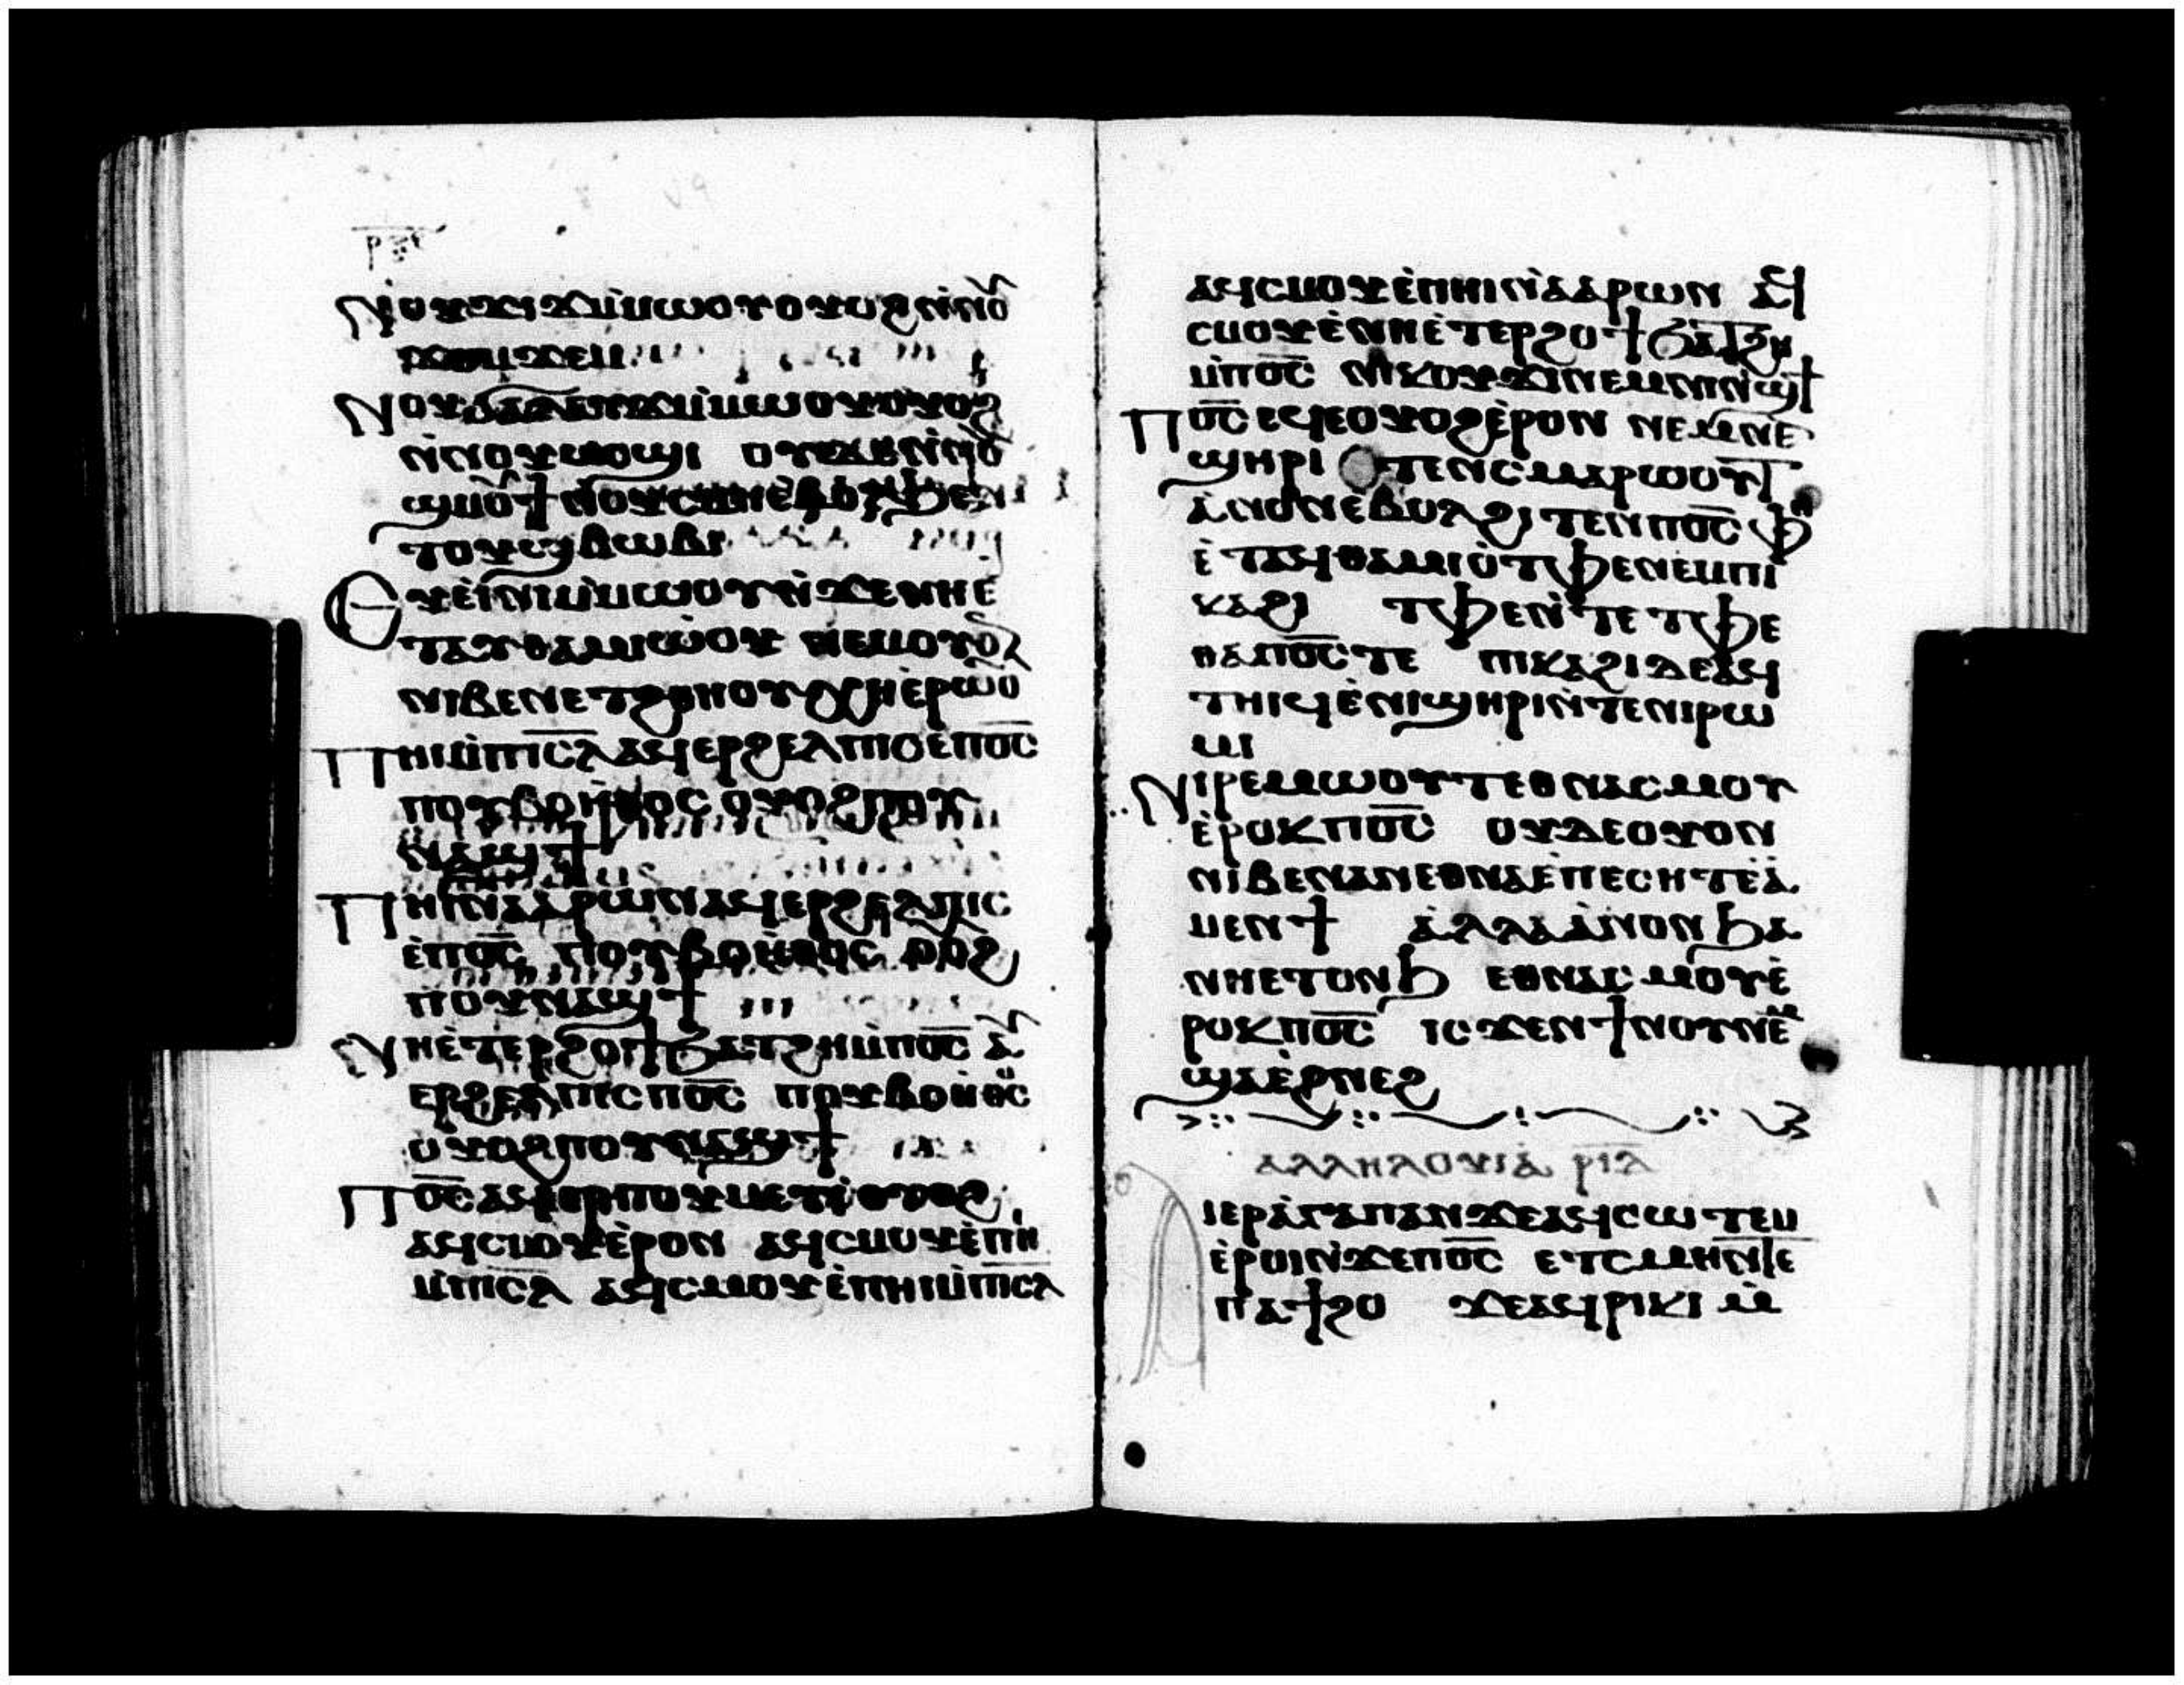 ⲣⲝⲉ
Ⲛⲟⲩϫⲓϫⲙ̇ⲙⲱⲟⲩⲟⲩⲟϩⲛ̇ⲛⲟ̅
ϫⲟⲙϫⲉⲙ
Ⲛⲟⲩϭⲁⲗⲁⲩϫⲙ̇ⲙⲱⲟⲩⲟⲩⲟϩ
ⲛ̇ⲛⲟⲩⲙⲟϣⲓ ⲟⲩⲇⲉⲛ̇ⲛⲟ̅
ϣⲙⲟ̅ϯⲛⲟⲩⲥⲙⲏⲉ̀ⲃⲟⲗϧⲉⲛ
ⲧⲟⲩϣⲃⲱⲃⲓ
Ⲉⲩⲉ̀ⲓ̀ⲛⲓⲙ̇ⲙⲱⲟⲩⲛ̀ϫⲉⲛⲏⲉ
ⲧⲁⲩⲑⲁⲙⲓⲱ̀ⲟⲩ ⲛⲉⲙⲟⲩⲟ̅
ⲛⲓⲃⲉⲛⲉⲧϩⲑⲏⲟⲩⲭⲏⲉ̀ⲣⲱⲟ̅
Ⲡⲏⲓⲙ̇ⲡⲓⲥ̅ⲗ̅ⲁϥⲉⲣϩⲉⲗⲡⲓⲥⲉ̀ⲡⲟ̅ⲥ̅
ⲡⲟⲩⲃⲟⲏ̀ⲑⲟⲥ ⲟⲩⲟϩⲡⲟⲩ
ⲛⲁϣϯ
Ⲡⲏⲓⲛ̀ⲁⲁⲣⲱⲛⲁϥⲉⲣϩⲉⲗⲡⲓⲥ
ⲉ̀ⲡⲟ̅ⲥ̅ ⲡⲟⲩⲃⲟⲏ̀ⲑⲟⲥ ⲟⲟϩ
ⲡⲟⲩⲛⲁϣϯ
Ⲛⲏⲉ̀ⲧⲉⲣϩⲟϯϧⲁⲧϩⲏⲙ̀ⲡⲟ̅ⲥ̅ ⲁ̅
ⲉⲣϩⲉⲗⲡⲓⲥⲡⲟ̅ⲥ̅ ⲡⲟⲩⲃⲟⲏ̀ⲑⲥ
ⲟⲩⲟϩⲡⲟⲩⲛⲁϣϯ
Ⲡⲟ̅ⲥ̅ⲁϥⲉⲣⲡⲟⲩⲙⲉⲩⲓ̀ⲟⲩⲟϩ
ⲁϥⲥⲙⲟⲩⲉ̀ⲣⲟⲛ ⲁϥⲥⲙⲟⲩⲉ̀ⲡⲏ
ⲙ̇ⲡⲓⲥ̅ⲗ̅ ⲁϥⲥⲙⲟⲩⲉ̀ⲡⲏⲓⲙ̇ⲡⲓⲥ̅ⲗ̅
ⲁϥⲥⲙⲟⲩⲉ̀ⲡⲏⲓⲛ̀ⲁⲁⲣⲱⲛ ⲁ̅ϥ
ⲥⲙⲟⲩⲉ̀ⲛⲏⲉ̀ⲧⲉⲣϩⲟϯϧⲁⲧϩⲏ
ⲙ̇ⲡⲟ̅ⲥ̅ ⲛⲓⲕⲟⲩϫⲓⲛⲉⲙⲛⲓⲛⲓϣϯ
Ⲡⲟ̅ⲥ̅ⲉϥⲉⲟⲩⲟϩⲉ̀ⲣⲟⲛ ⲛⲉⲙⲛⲉ
ϣⲏⲣⲓ ⲧⲉⲛⲥⲙⲁⲣⲱⲟⲩⲧ
ⲁ̀ⲛⲟⲛⲉ̀ⲃⲟⲗϩⲓⲧⲉⲛⲡⲟ̅ⲥ̅ ⲫⲏ
ⲉ̀ⲧⲁϥⲑⲁⲙⲓⲟ̀ⲧⲫⲉⲛⲉⲙⲡⲓ
ⲕⲁϩⲓ ⲧⲫⲉⲛ̀ⲧⲉⲧⲫⲉ
ⲑⲁⲡⲟ̅ⲥ̅ⲧⲉ ⲡⲓⲕⲁϩⲓⲇⲉⲁϥ
ⲧⲏⲓϥⲉ̀ⲛⲓϣⲏⲣⲓⲛ̀ⲧⲉⲛⲓⲣⲱ
ⲙⲓ
Ⲛⲓⲣⲉϥⲙⲱⲟⲩⲧⲉⲑⲛⲁⲥⲙⲟⲩ
ⲉ̀ⲣⲟⲕⲡⲟ̅ⲥ̅ ⲟⲩⲇⲉⲟⲩⲟⲛ
ⲛⲓⲃⲉⲛⲁⲛⲉⲑⲛⲁⲉ̀ⲡⲉⲥⲏⲧⲉ̀ⲁ̀
ⲙⲉⲛϯ ⲁ̀ⲗⲗⲁⲁ̀ⲛⲟⲛϧⲁ
ⲛⲏⲉⲧⲟⲛϧ ⲉⲑⲛⲁⲥⲙⲟⲩⲉ̀
ⲣⲟⲕⲡⲟ̅ⲥ̅ ⲓⲥϫⲉⲛϯⲛⲟⲩⲛⲉ̅ⲙ
ϣⲁⲉ̀ⲣⲛⲉϩ
ⲁⲗⲗⲏⲗⲟⲩⲓⲁ̀ ⲣⲓⲇ
Ⲁⲓⲉⲣⲁ̀ⲅⲁⲡⲁⲛϫⲉⲁϥⲥⲱⲧⲉⲙ
ⲉ̀ⲣⲟⲓⲛ̀ϫⲉⲡⲟ̅ⲥ̅ ⲉ̀ⲧⲥⲙⲏⲛ̀ⲧⲉ
ⲡⲁϯϩⲟ ϫⲉⲁϥⲣⲓⲕⲓ ⲙ̀